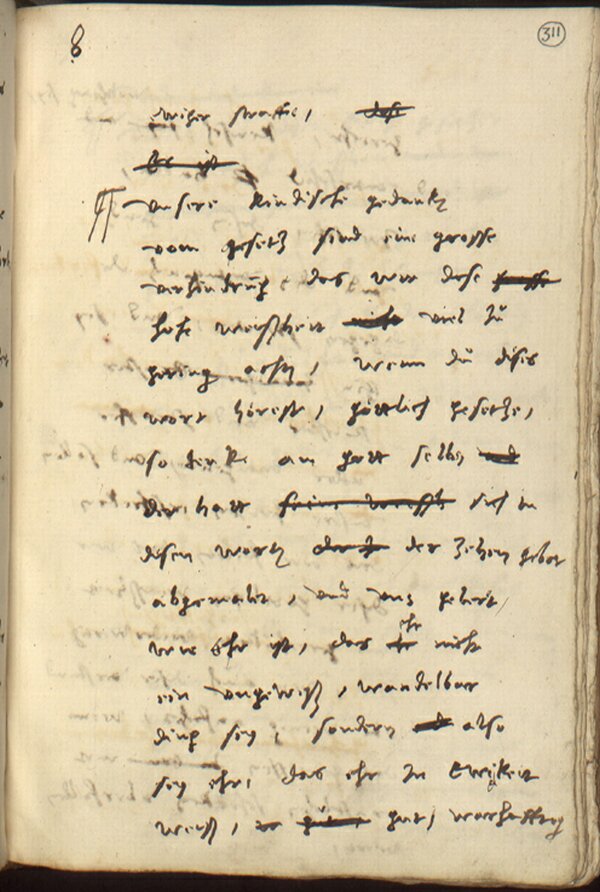 8
311
ewiger straffe, das
Es ist
unsere kindische gedanken
vom gesetz sind eine grosse
verhindrung, das wir dise grosse
hohe weisheit nicht viel zu
gering achten, wenn du dises
wort hörest, göttlich gesetze,
so denke an gott selber und
der hatt seine sich in
disen worten der zehen gebot
abgemalet, und uns gelert,
wie Ehr ist, das ehr nicht
ein ungewiß, wandelbar
ding sey, sondern also
sey ehr, das ehr in Ewikeit
weiß, gut, warhafftig